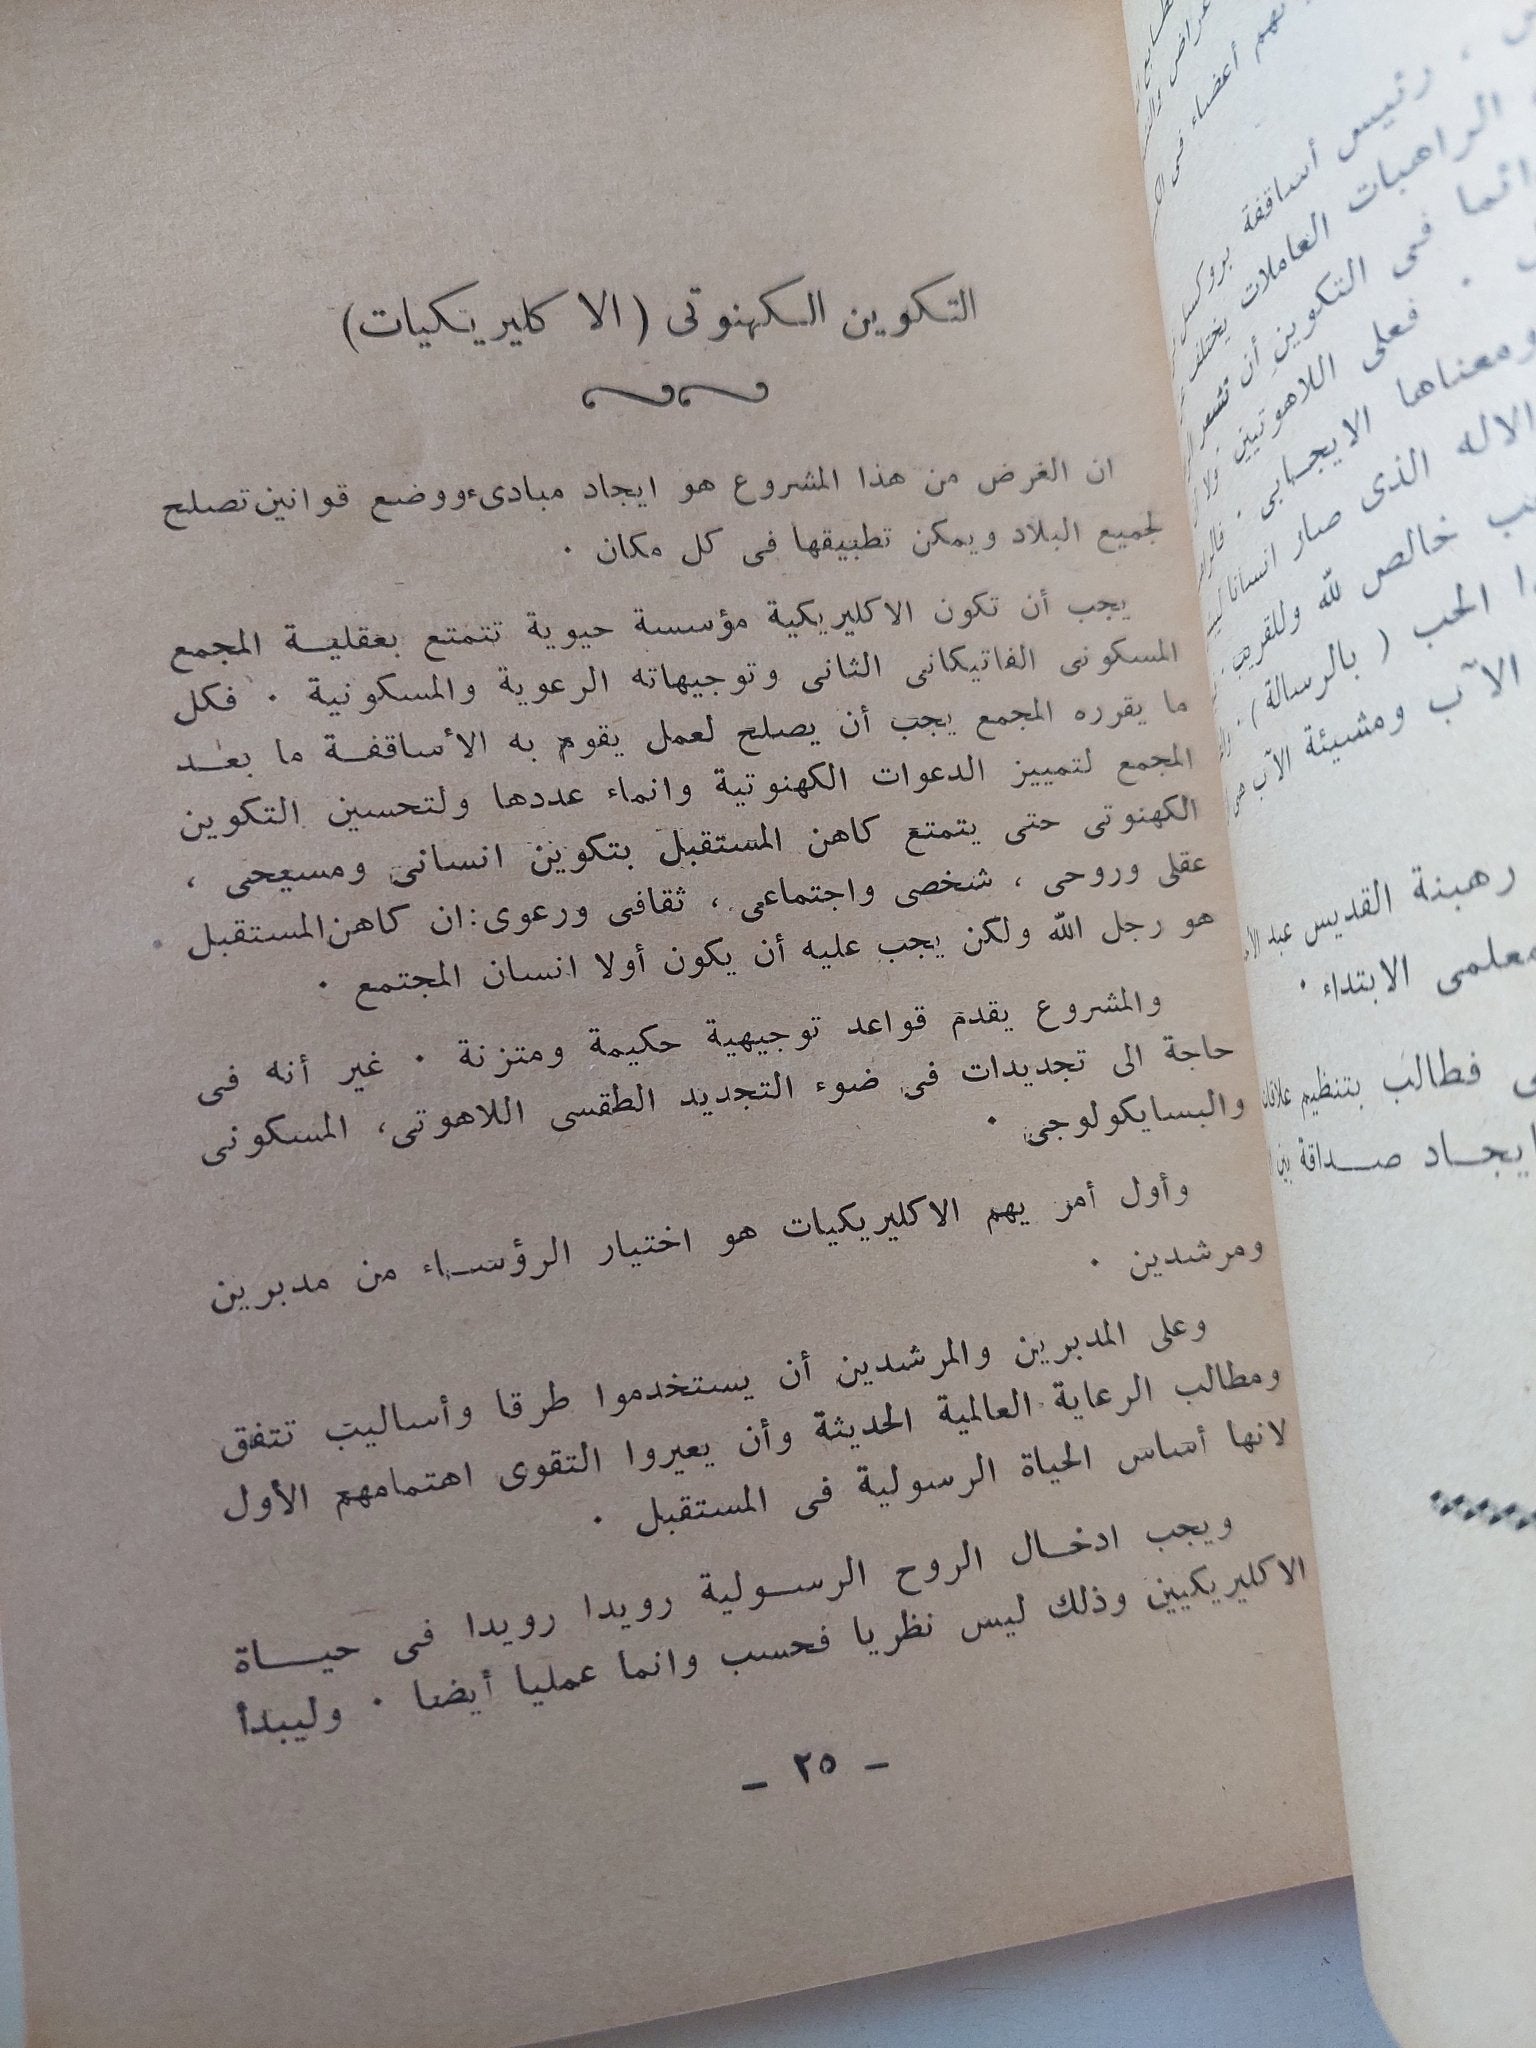 التكوين الكهنوتى (الاكليريكيات)
ان الغرض من هذا المشروع هو ايجاد مبادىء ووضع قوانين تصلح
لجميع البلاد ويمكن تطبيقها فى كل مكان ٠
يجب أن تكون الاكليريكية مؤسسة حيوية تتمتع بعقلية المجمع
المسكونى الفاتيكانى الثانى وتوجيهاته الرعوية والمسكونية ٠ فكل
ما يقرره المجمع يجب أن يصلح لعمل يقوم به الأساقفة ما بعد
المجمع لتمييز الدعوات الكهنوتية وانماء عددها ولتحسين التكوين
الكهنوتى حتى يتمتع كاهن المستقبل بتكوين انسانى ومسيحى ،
عقلى وروحى ، شخصى واجتماعى ، ثقافى ورعوى : ان كاهن المستقبل
هو رجل الله ولكن يجب عليه أن يكون أولا انسان المجتمع ٠
والمشروع يقدم قواعد توجيهية حكيمة ومتزنة ٠ غير أنه فى
حاجة الى تجديدات فى ضوء التجديد الطقسى اللاهوتى، المسكونى
والبسايكولوجى ٠
وأول أمر يهم الاكليريكيات هو اختيار الرؤساء من مدبرين
ومرشدين ٠
وعلى المدبرين والمرشدين أن يستخدموا طرقا وأساليب تتفق
ومطالب الرعاية العالمية الحديثة وأن يعيروا التقوى اهتمامهم الأول
لانها أساس الحياة الرسولية فى المستقبل ٠
ويجب ادخال الروح الرسولية رويدا رويدا فى حياة
الاكليريكيين وذلك ليس نظريا فحسب وانما عمليا أيضا ٠ وليبدأ
- ٢٥ -
بهم أعضاء فى
، رئيس أساقفة بروكسل
الراهبات العاملات يختلف
فى التكوين أن تشعر
٠ فعلى اللاهوتيين
ومعناها الايجابى ٠
الاله الذى صار انسانا
خالص لله وللقريب
الحب ( بالرسالة) ٠
الآب ومشيئة الآب
رهبنة القديس عبد
معلمى الابتداء ٠
فطالب بتنظيم علاقات
ايجاد صداقة بين